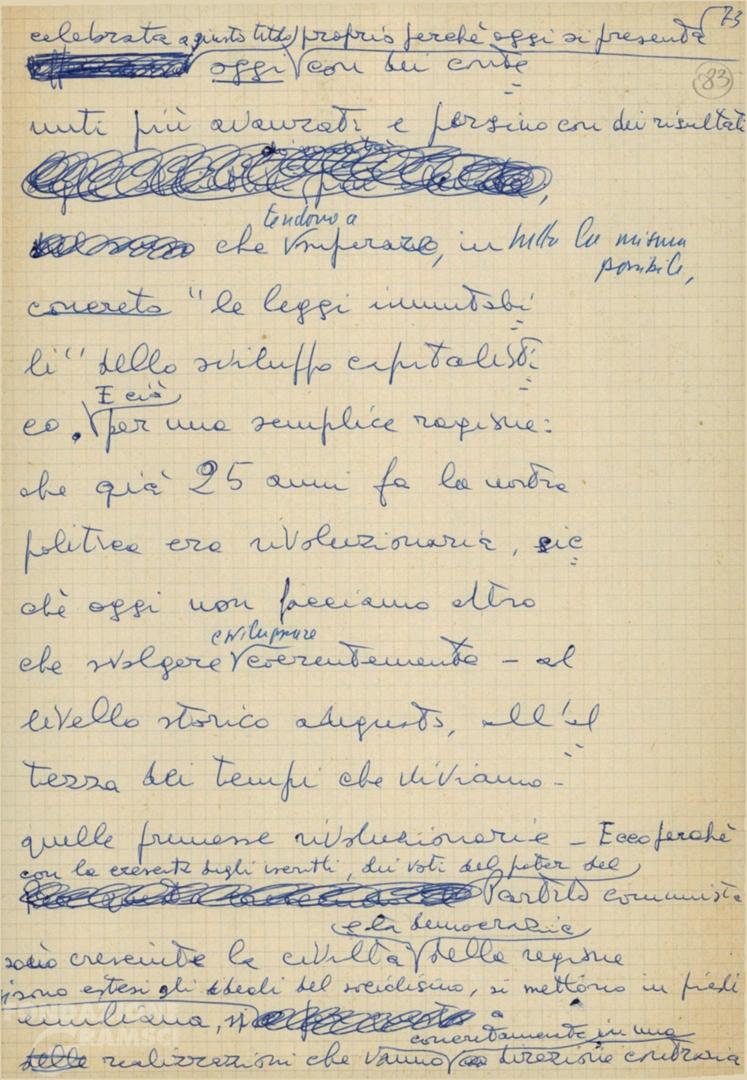 73
83
celebrata a giusto titolo proprio perchè oggi si presenta
oggi con dei conte
nuti più avanzati e persino con dei risultati
tendono a
che superare, in tutta la misura
possibile,
concreto "le leggi immutabi
li" dello sviluppo capitalisti
E ciò
co. per una semplice ragione:
che già 25 anni fa la nostra
politica era rivoluzionaria, sic
chè oggi non facciamo altro
sviluppare
che svolgere coerentemente - al
livello storico adeguato, all'al
tezza dei tempi che viviamo -
quelle premesse rivoluzionarie - Ecco perchè
con la crescita degli iscritti, dei voti del poter del
Partito comunista
e la democrazia
cresciute la civiltà della regione
sono estesi gli ideali del socialismo, si mettono in piedi
emiliana, si
concretamente in una
delle realizzazioni che vanno direzione contraria